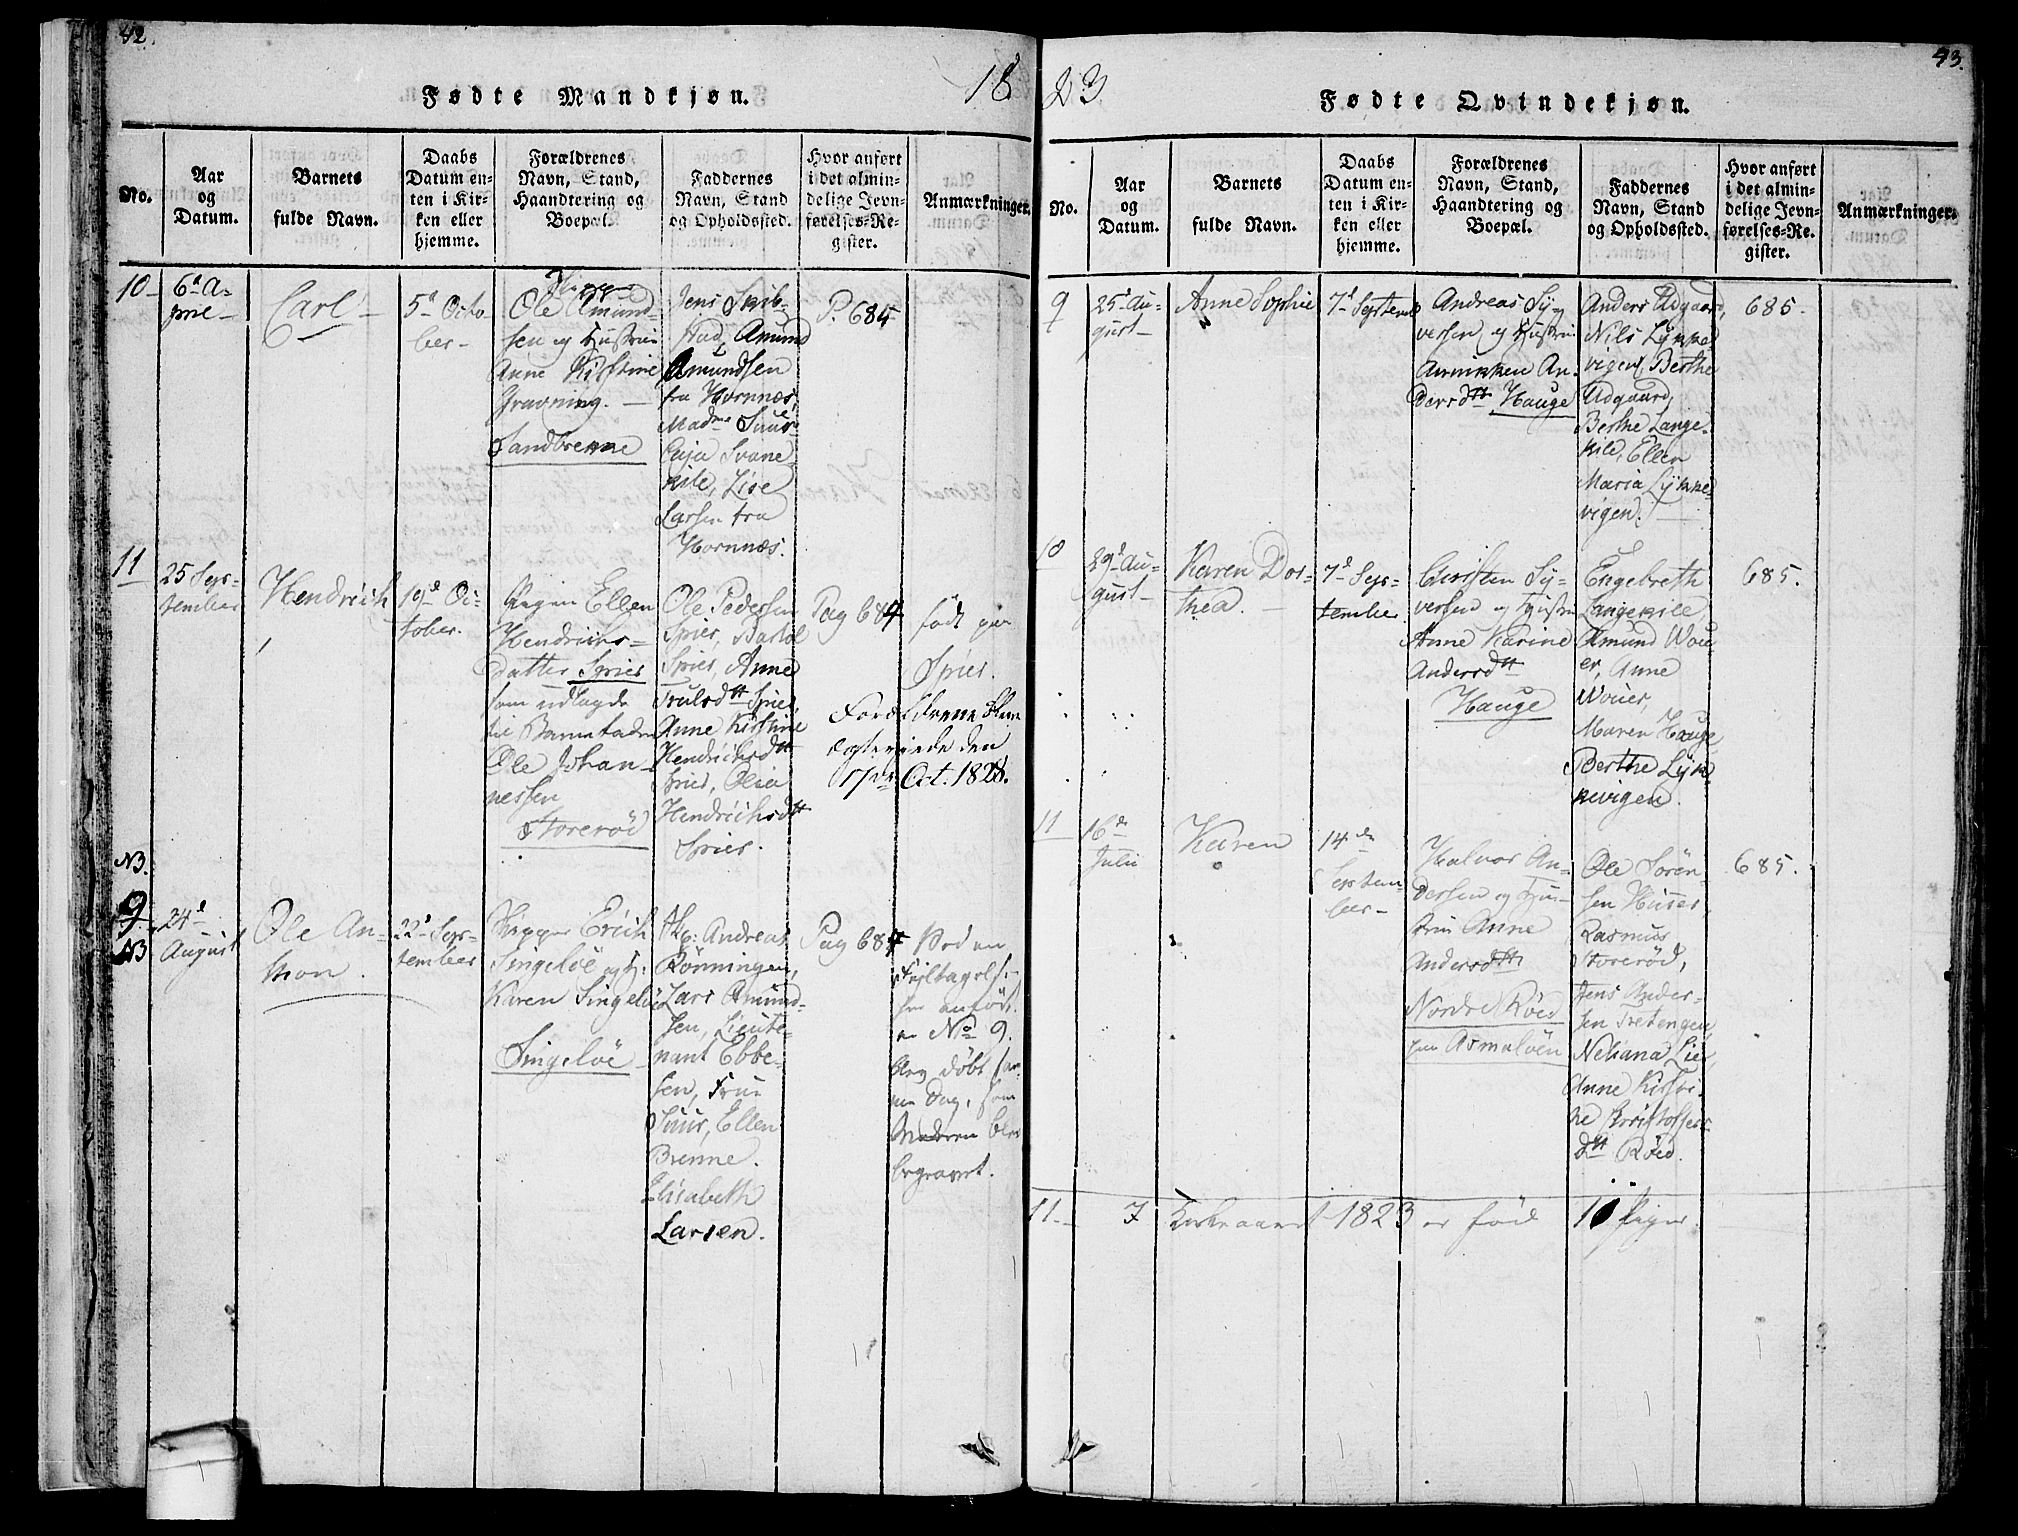 42.
Fødte Mandkjøn.
18
No.
Aar
og
Datum.
Barnets
fulde Navn.
Daabs
Datum en-
ten i Kir-
ken eller
hjemme.
Forældrenes
Navn, Stand,
Haandtering og
Boepæl.
Faddernes
Navn, Stand
og Opholdssted.
Hvor anført
i det almin-
delige Jevn-
førelses-Re-
gister.
Anmærkninger.
10
Carl
5d Octo
ber
Ole Amund-
sen og Hustrue
Anne Kirstine
Gravning.
Sandbrenne
Jens Skib-
stad, Amund
Amundsen
fra Hornnes,
Madme Suur
Svane
kile, Lise
Larsen fra
Hornnæs.
P. 684
11
25 Sep-
tember
Hendrich
19d Oc-
tober.
Pigen Ellen
Hendrichs-
datter Spier
som udlagde
til Barnefader
Ole Johan-
nessen
Storerød
Ole Pedersen
Spier, Bartol
Spier, Anne
Trulsdtt Spier,
Anne Kirstine
Hendrichsdtt
Spier, Olia
Hendrichsdtt
Spier.
Pag 684
født paa
Spier.
Forældrene bleve
ægteviede den
17de Oct. 1828.
NB.
9
NB
24d
August
Ole An-
thon.
22d Sep-
tember
Skipper Erich
Singeløe og H.
Karen Singeløe
Singeløe
Andreas
Rønningen,
Lars Amund-
sen, Lieute-
nant Ebbe-
sen, Frue
Suur, Ellen
Brenne.
Elisabeth
Larsen.
Pag 684
Ved en
Feiltagelse
her anført.
er No 9.
blev døbt sam-
me Dag, som
Moderen blev
begravet.
43.
23
Fødte Qvindekjøn.
No.
Aar
og
Datum.
Barnets
fulde Navn.
Daabs
Datum en-
ten i Kir-
ken eller
hjemme.
Forældrenes
Navn, Stand,
Haandtering og
Boepæl.
Faddernes
Navn, Stand
og Opholdssted.
Hvor anført
i det almin-
delige Jevn-
førelses-Re-
gister.
Anmærkninger.
9
25d Au-
gust
Anne Sophie
7d Septemb
Andreas Sy-
versen og Hustrue
Annikken An-
dersdtt Hauge
Anders Udgaard,
Nils Lykke
vigen, Berthe
Udgaard,
Berthe Lange-
kile, Ellen
Maria Lykke-
vigen.
685.
10
29d Au-
gust
Karen Dor-
thea.
7d Sep-
tember
Christen Sy-
versen og Hustru
Anne Karine
Andersdtt
Hauge
Engebreth
Langekile,
Amund Wou
er, Anne
Wouer,
Maren Hauge
Berthe Lyk-
kevigen.
685.
11
16de
Julii
Karen
14de
Septem-
ber
Halvor An-
dersen og Hu-
strue Anne
Andersdtt
Nordre Røed
paa Asmaløen
Ole Søren-
sen Huser,
Rasmus
Storerød,
Jens Ander-
sen Tretengen,
Neliana Lie,
Anne Kirsti-
ne Christoffers-
dtt Røed.
685.
11.
7
Kirkeaaret 1823 er fød 11 Piger